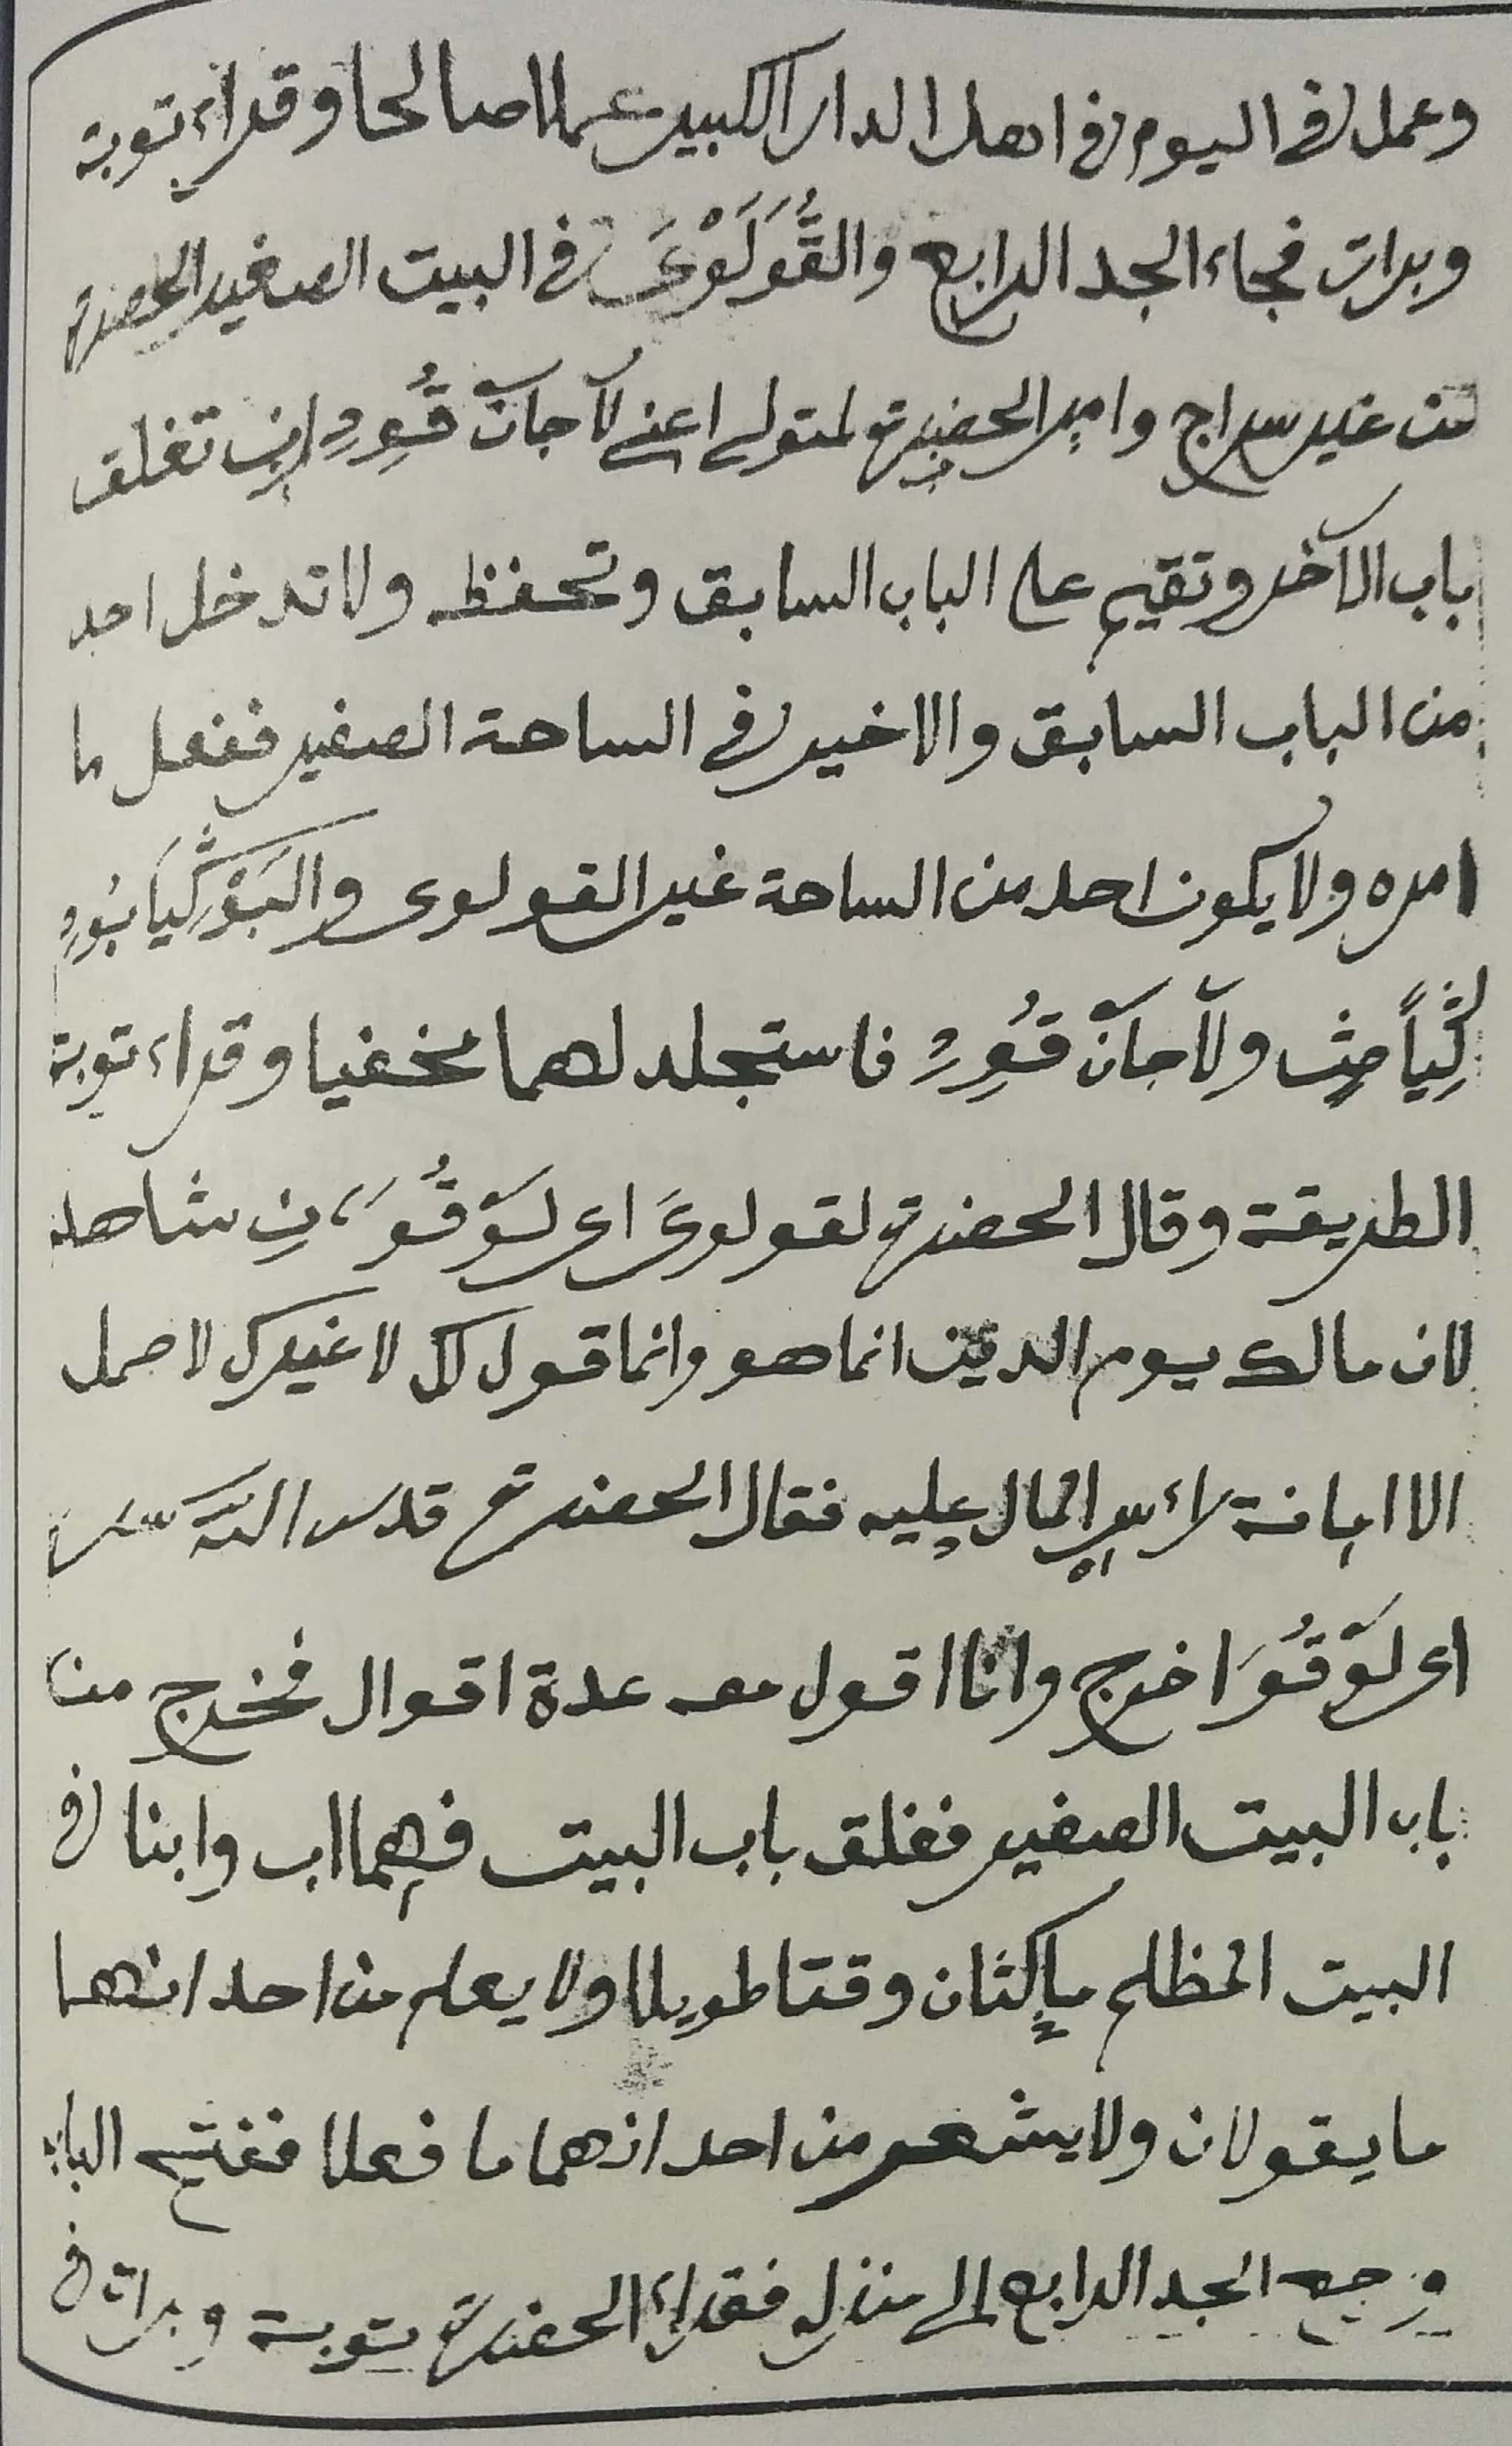 وعمل في اليوم في اهل الدار الكبير عملا صالحا وقراء توبة
وبرات فجاء الجد الرابع والقُّوَلَوْىَ في البيت الصغير الحضرة
من غير سراج وامر الحضرة لمتولى اعنے لآجان قُورِ ان تغلق
باب الآخر وتقيم على الباب السابق وتحفظ ولا تدخل احد
من الباب السابق والاخير في الساحة الصغير ففعل ما
امره ولا يكون احد من الساحة غير القولوى
ولآجان قُورِ فاستجلد لهما مخفيا وقراء توبة
الطريقة وقال الحضرة لقولوىَ اى شاهد
لان مالك يوم الدين انما هو وانما قول لك لا غيرك لا حمل
الا امانة رائس المال عليه فقال الحضرة قدس اللّه سره
اى اخرج وانا اقول معه عدة اقوال فخرج من
باب البيت الصغير فغلق باب البيت فهما اب وابنا في
البيت المظلم ماكثان وقتا طويلا ولا يعلم من احد انهما
ما يقولان ولا يشعر من احد انهما ما فعلا ففتح الباب
ورجع الجد الرابع الى منزله فقراء الحضرة بتوبة وبرات في